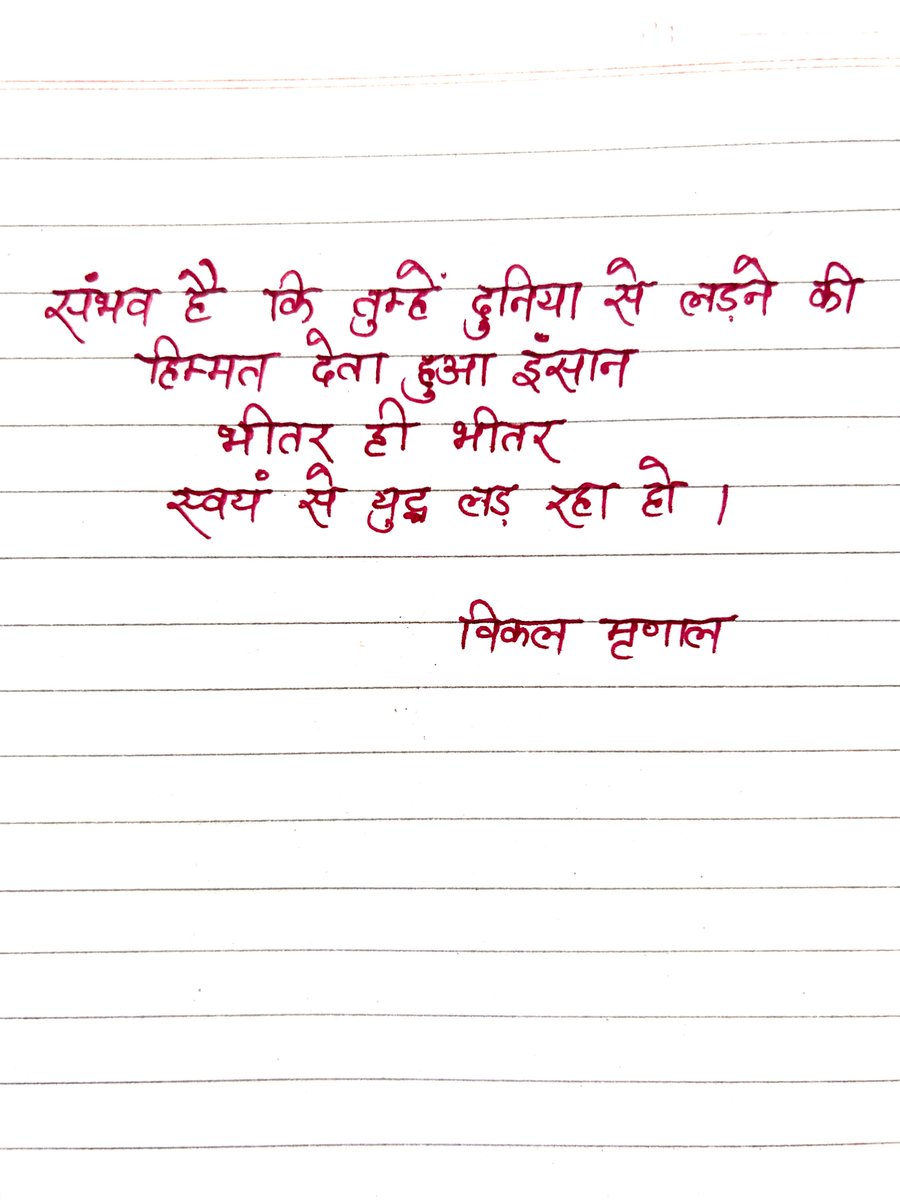 संभव है कि तुम्हें दुनिया से लड़ने की
हिम्मत देता हुआ इंसान
भीतर ही भीतर
स्वयं से युद्ध लड़ रहा हो ।
विकल मृणाल